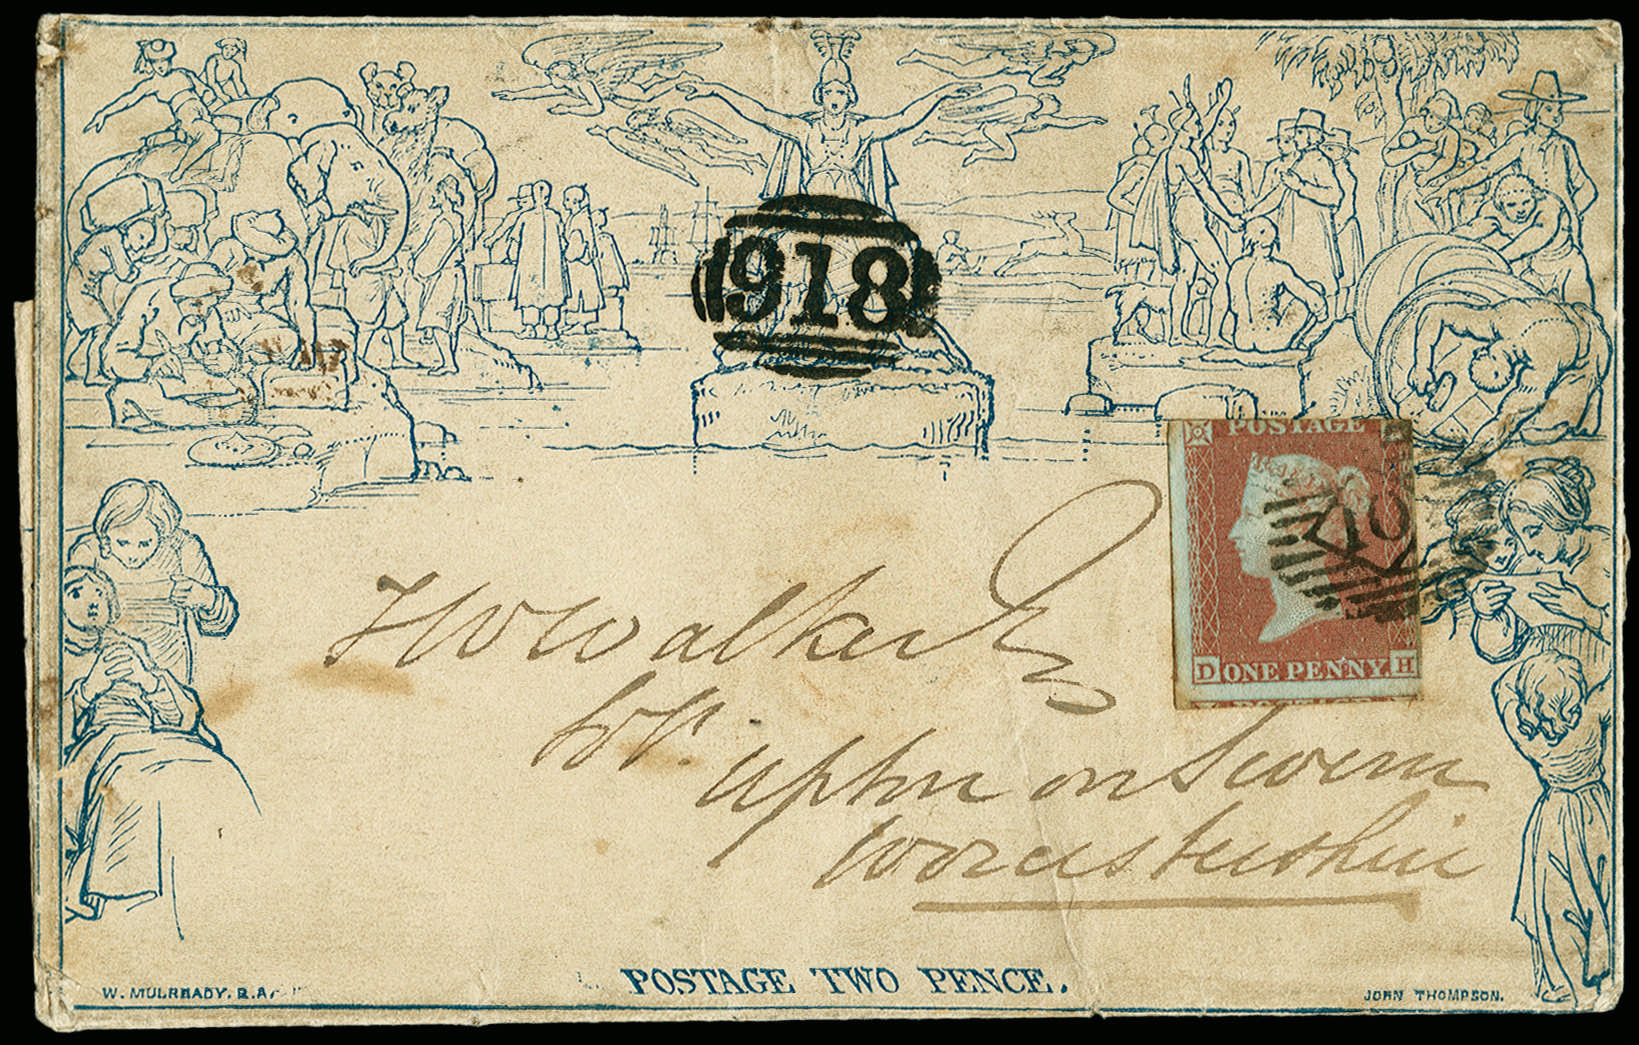 918
POSTAGE
D ONE PENNY. H
H W Walker Esq
Upton on Severn
Worcestershire
POSTAGE TWO PENCE.
W. MULREADY. R.A.
JOHN THOMPSON.